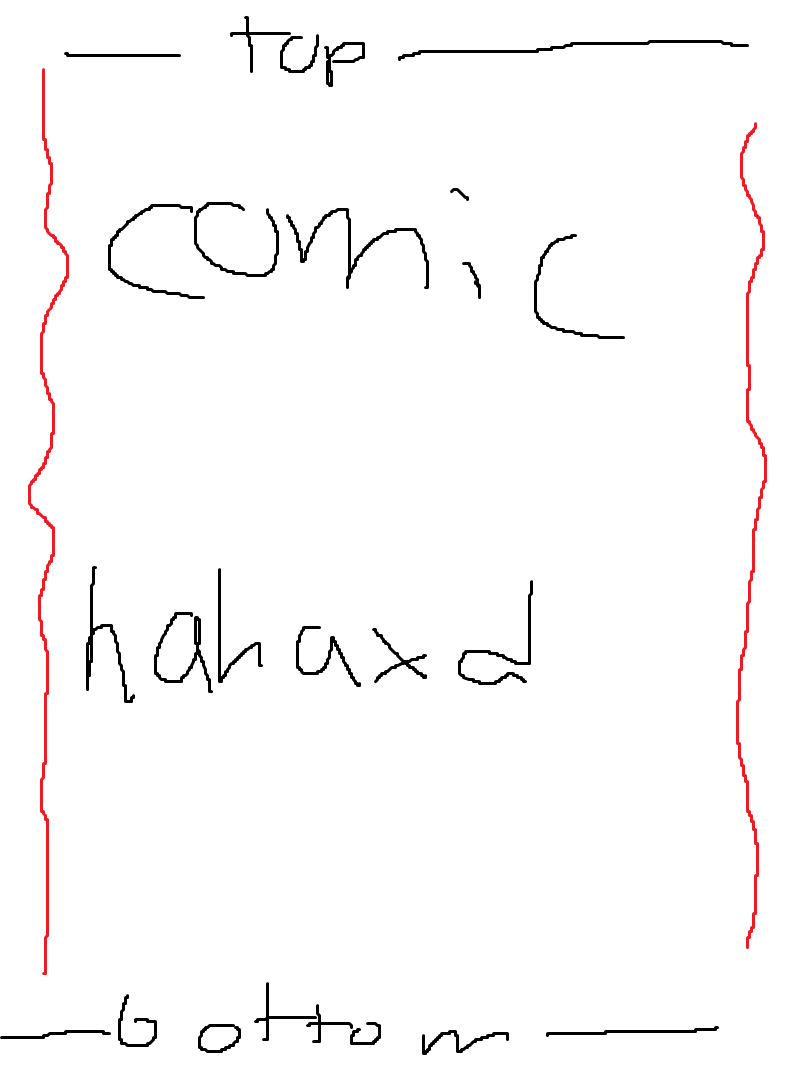 top
comic
hahaxd
bottom